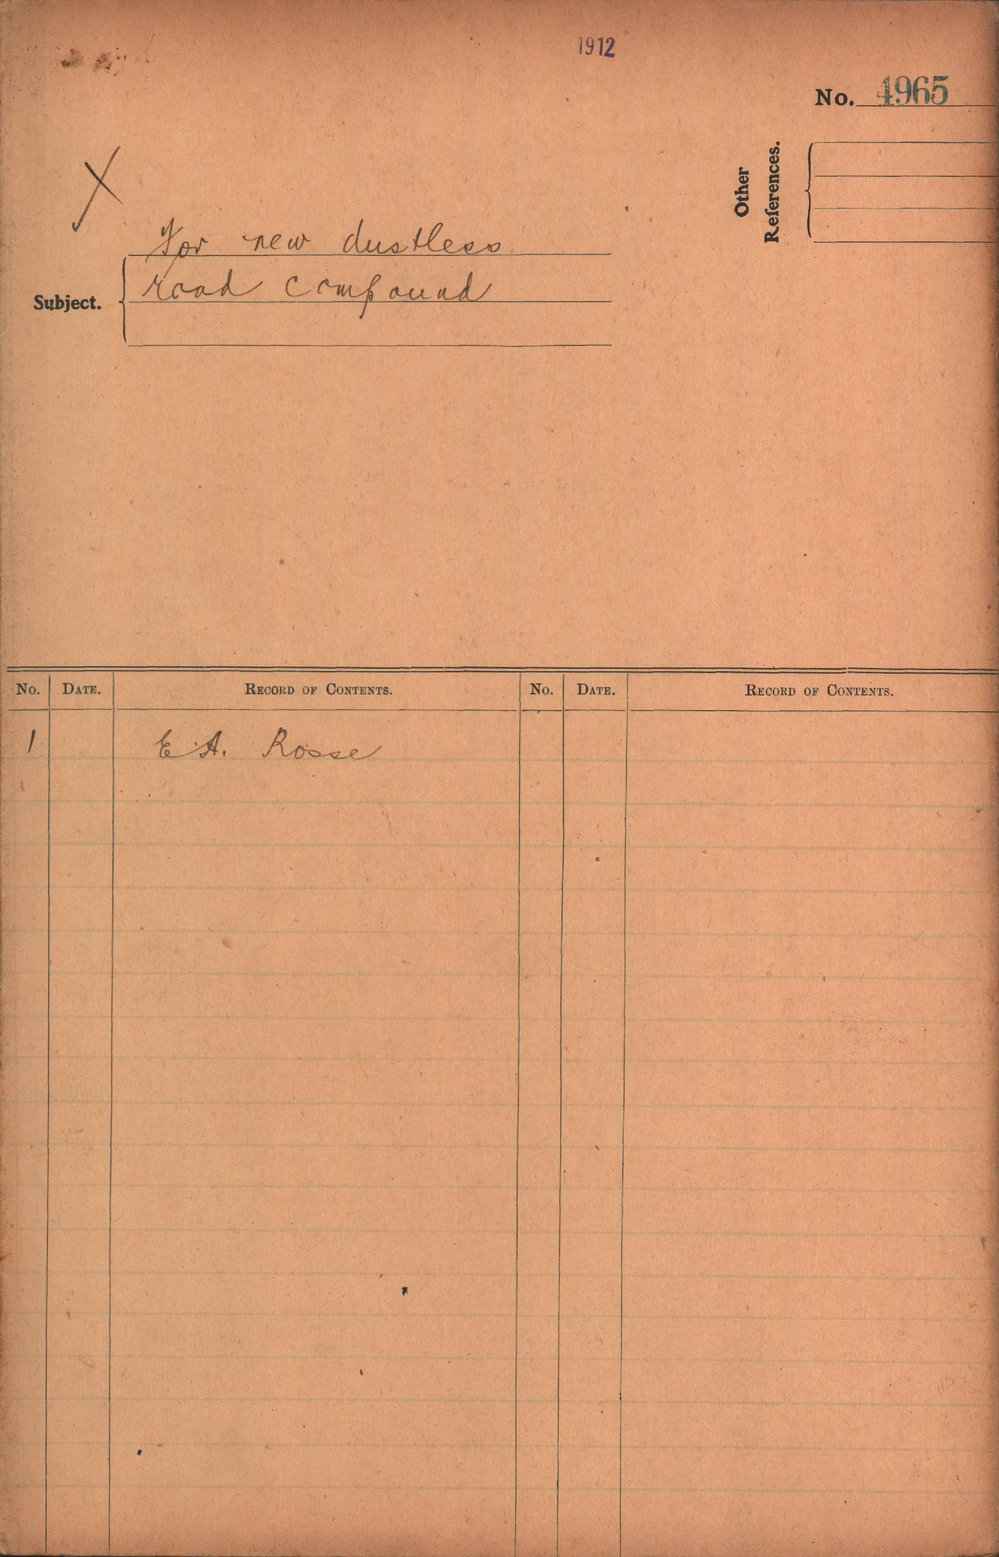 1912
No. 4965
Other References.
For new dustless
Subject. road compound
No. DATE. RECORD OF CONTENTS. No. DATE. RECORD OF CONTENTS.
1 E. A. Rosse